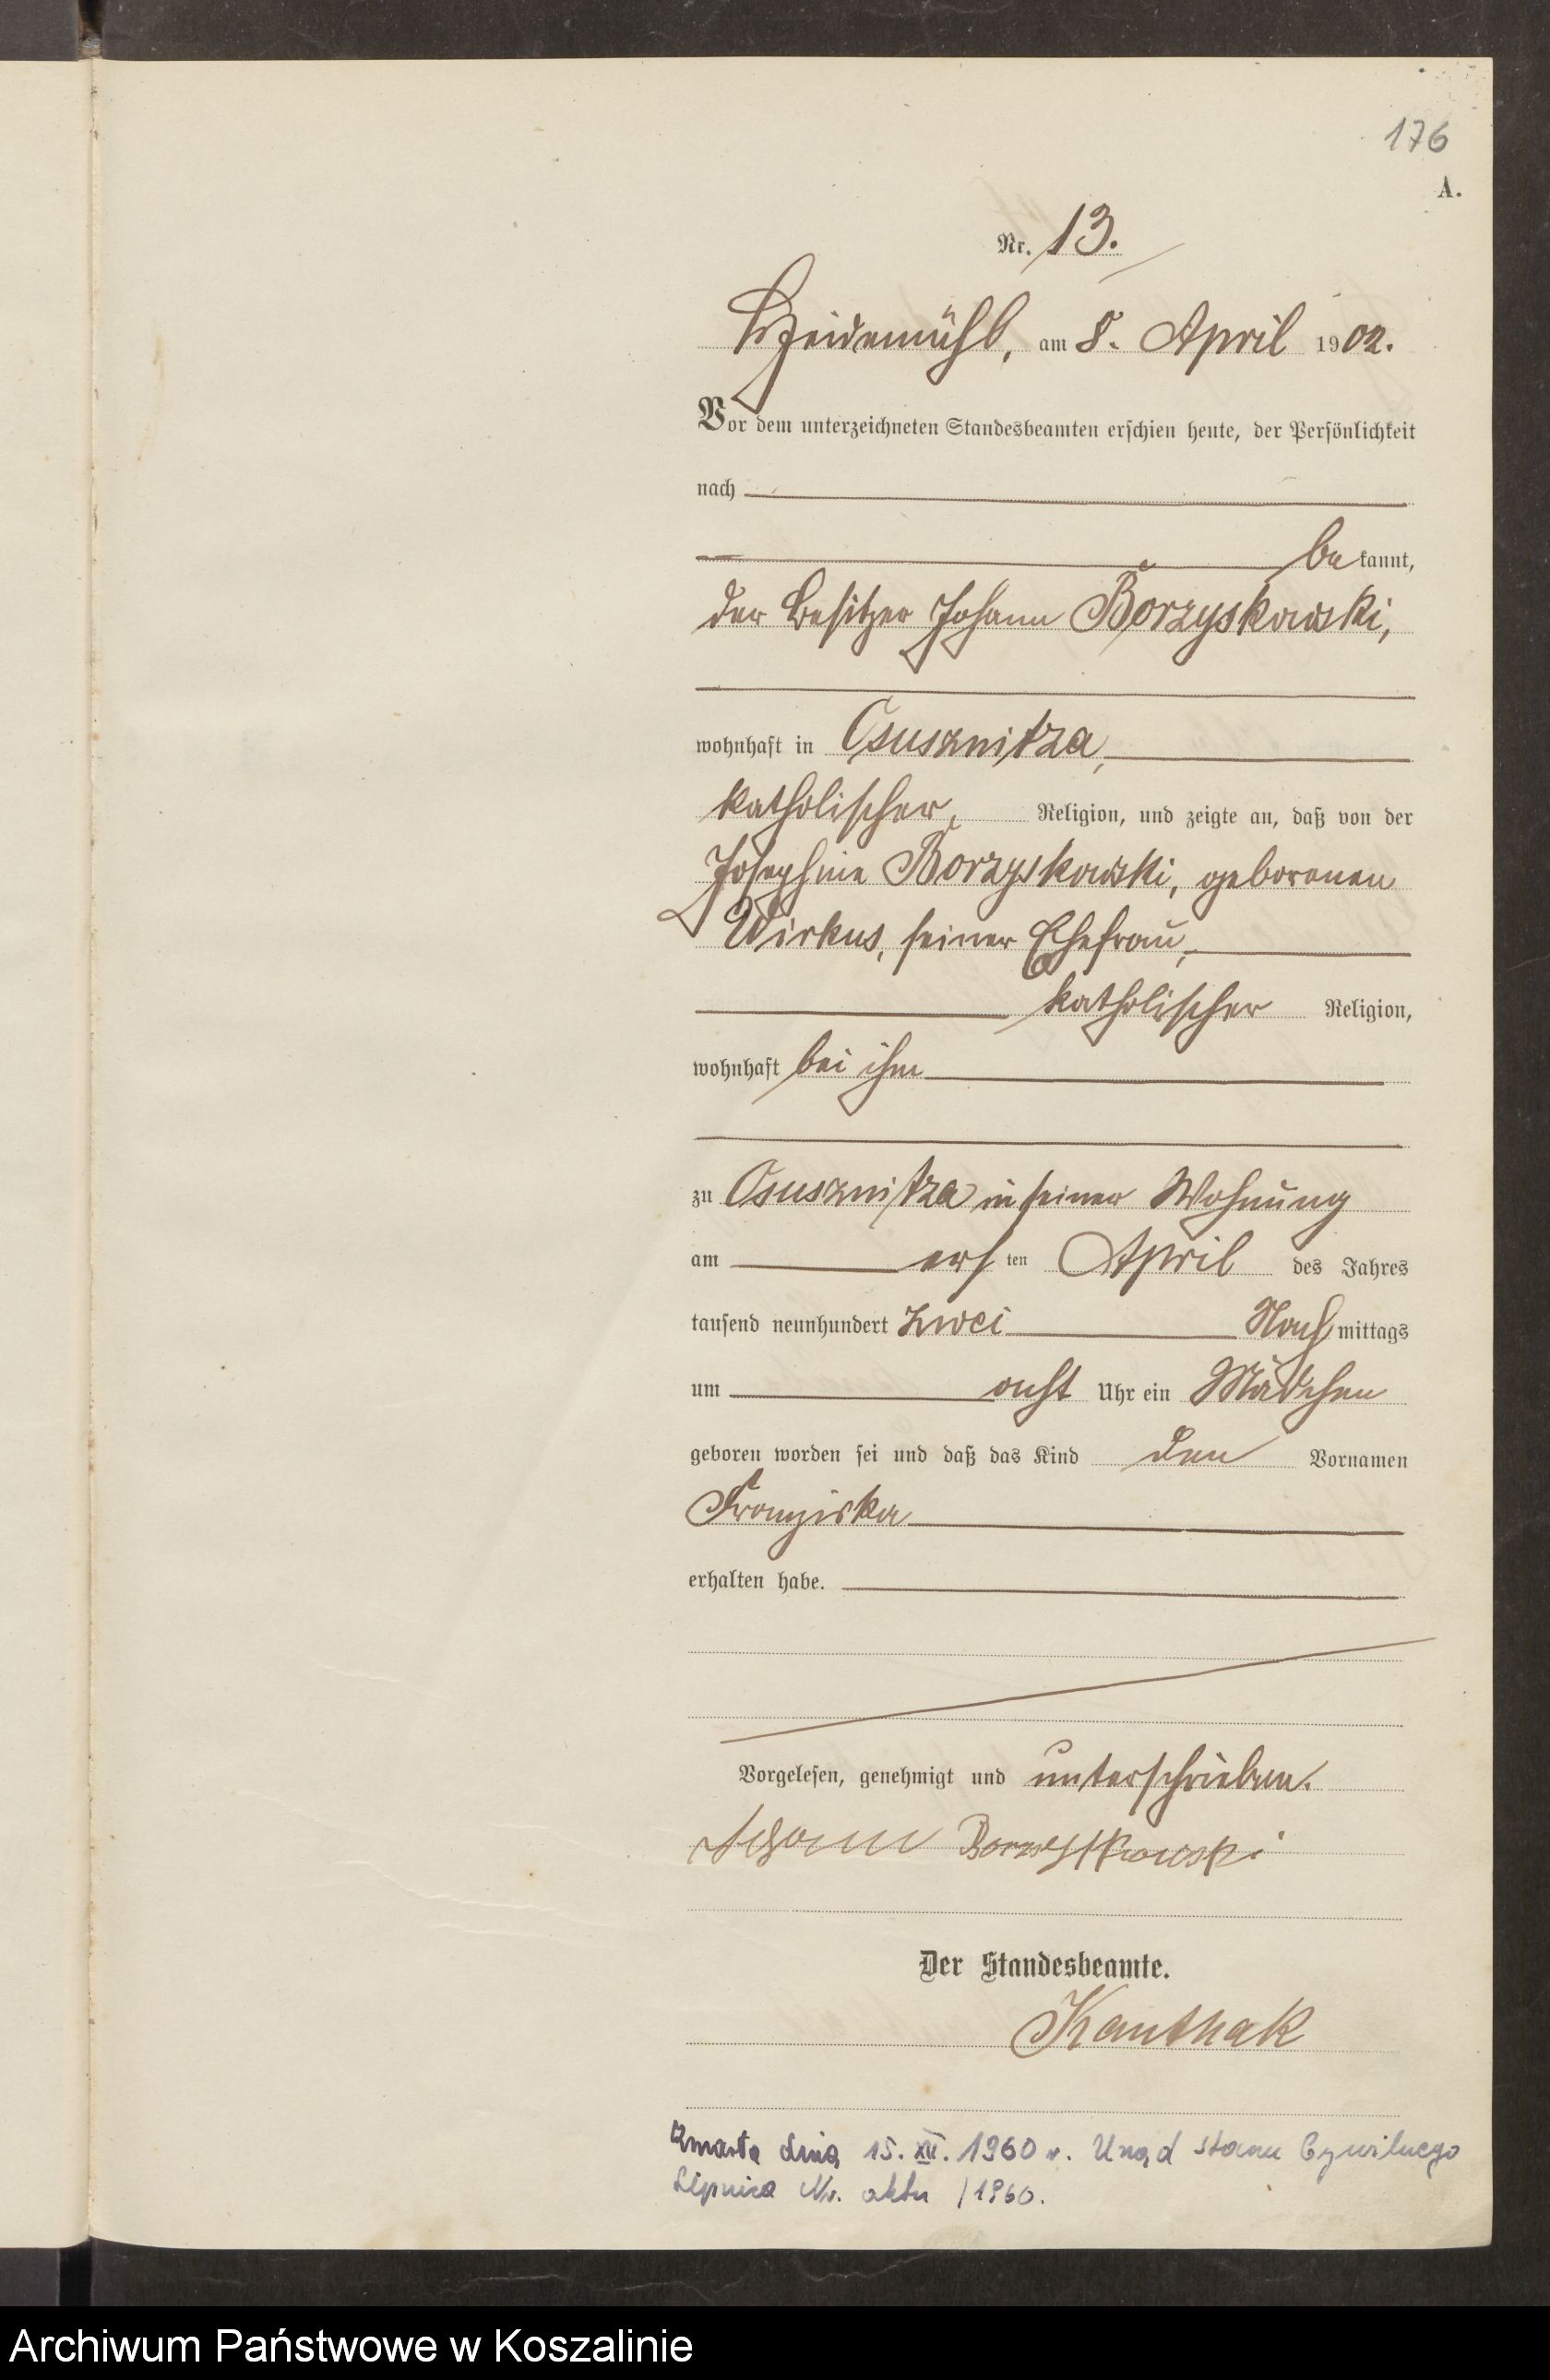 176
A.
Nr. 13.
Heidemühl, am 8. April 1902.
Vor dem unterzeichneten Standesbeamten erschien heute, der Persönlichkeit
nach
be kannt,
der Besitzer Johann Borzyskowski,
wohnhaft in Osusznitza,
katholischer, Religion, und zeigte an, daß von der
Josephine Borzyskowski, geborenen
Wirkus, seiner Ehefrau,
katholischer Religion,
wohnhaft bei ihm
zu Osusznitza in seiner Wohnung
am ersten April des Jahres
tausend neunhundert zwei Nachmittags
um acht Uhr ein Mädchen
geboren worden sei und daß das Kind den Vornamen
Franziska
erhalten habe.
Vorgelesen, genehmigt und unterschrieben.
Johann Borzyskowski
Der Standesbeamte.
Kanthak
Zmarła dnia 15. XII. 1960 r. Urząd Stanu Cywilnego
Lipnica Nr. aktu /1960.
Archiwum Państwowe w Koszalinie